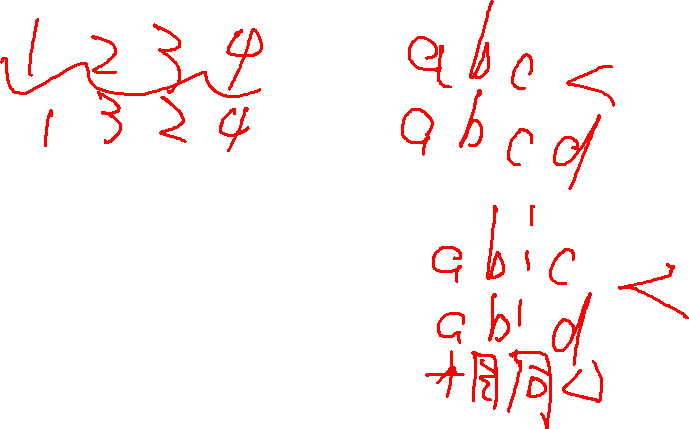 1 2 3 4
1 3 2 4
a b c <
a b c d
a b i c <
a b i d
相同